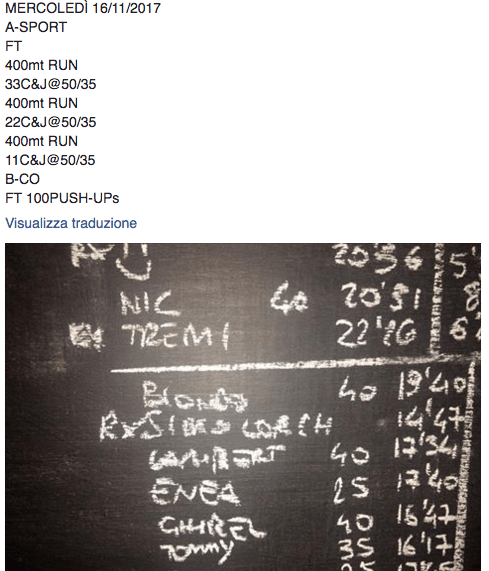 MERCOLEDÌ 16/11/2017
A-SPORT
FT
400mt RUN
33C&J@50/35
400mt RUN
22C&J@50/35
400mt RUN
11C&J@50/35
B-CO
FT 100PUSH-UPs
Visualizza traduzione
RX 20'36 5'
NIC 40 20'51 8
TREMI 22'26 6'
BIONDO 40 19'40
RX 14'47
LAMBERT 40 17'34
ENEA 25 17'40
40
TOMMY 35 16'17